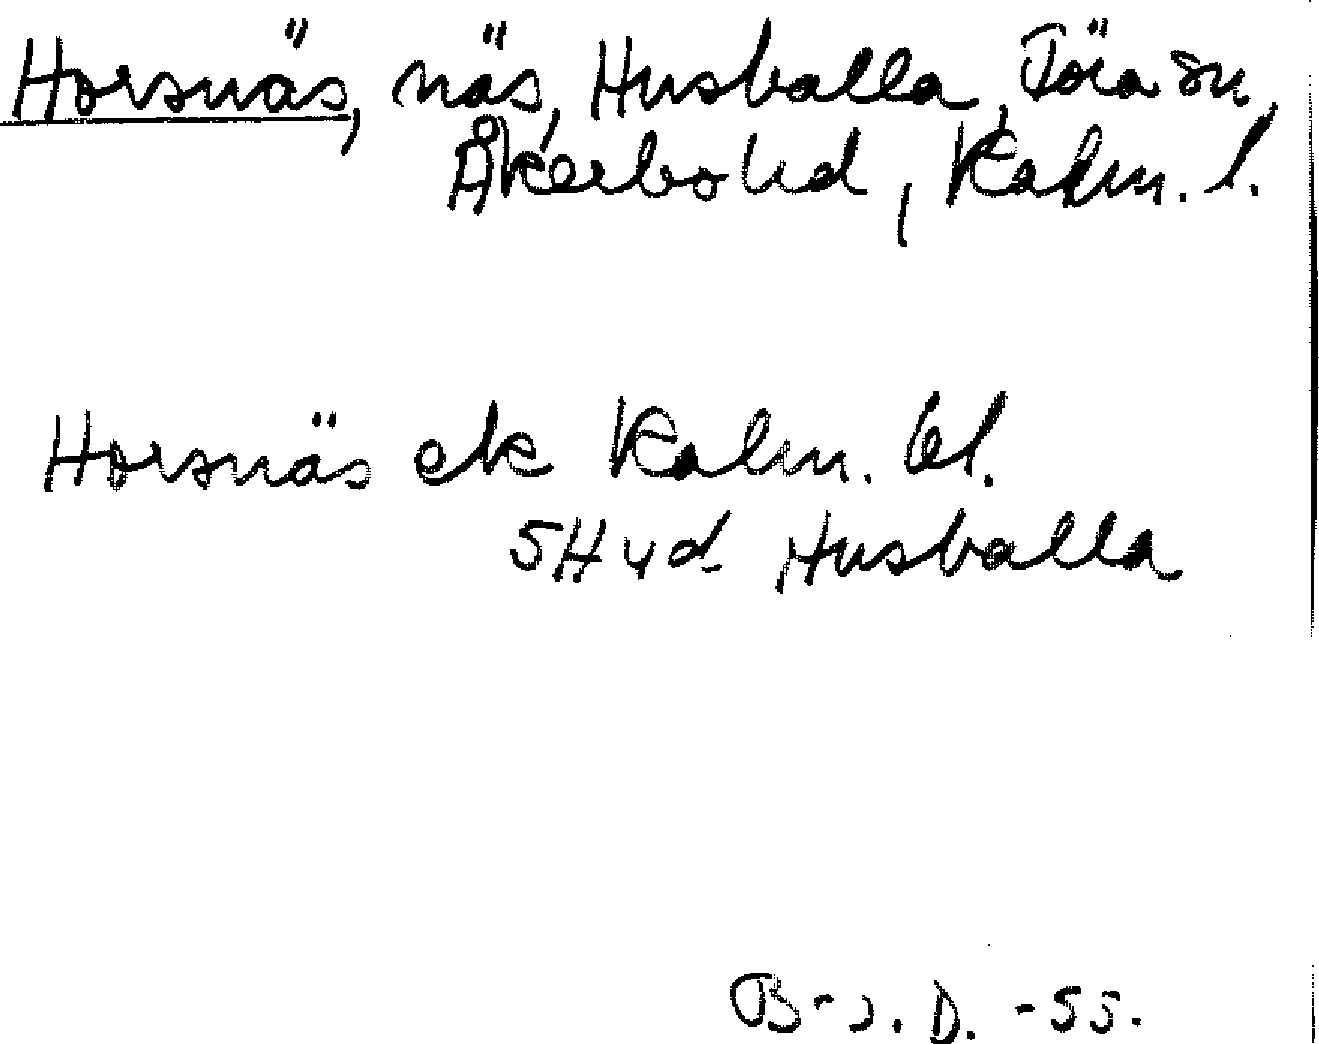 Horsnäs, näs, Husvalla, Föra sn,
Åkerbo hd, Kalm. l.
Horsnäs ek Kalm. bl.
5H yd Husvalla
B-J. D. -55.